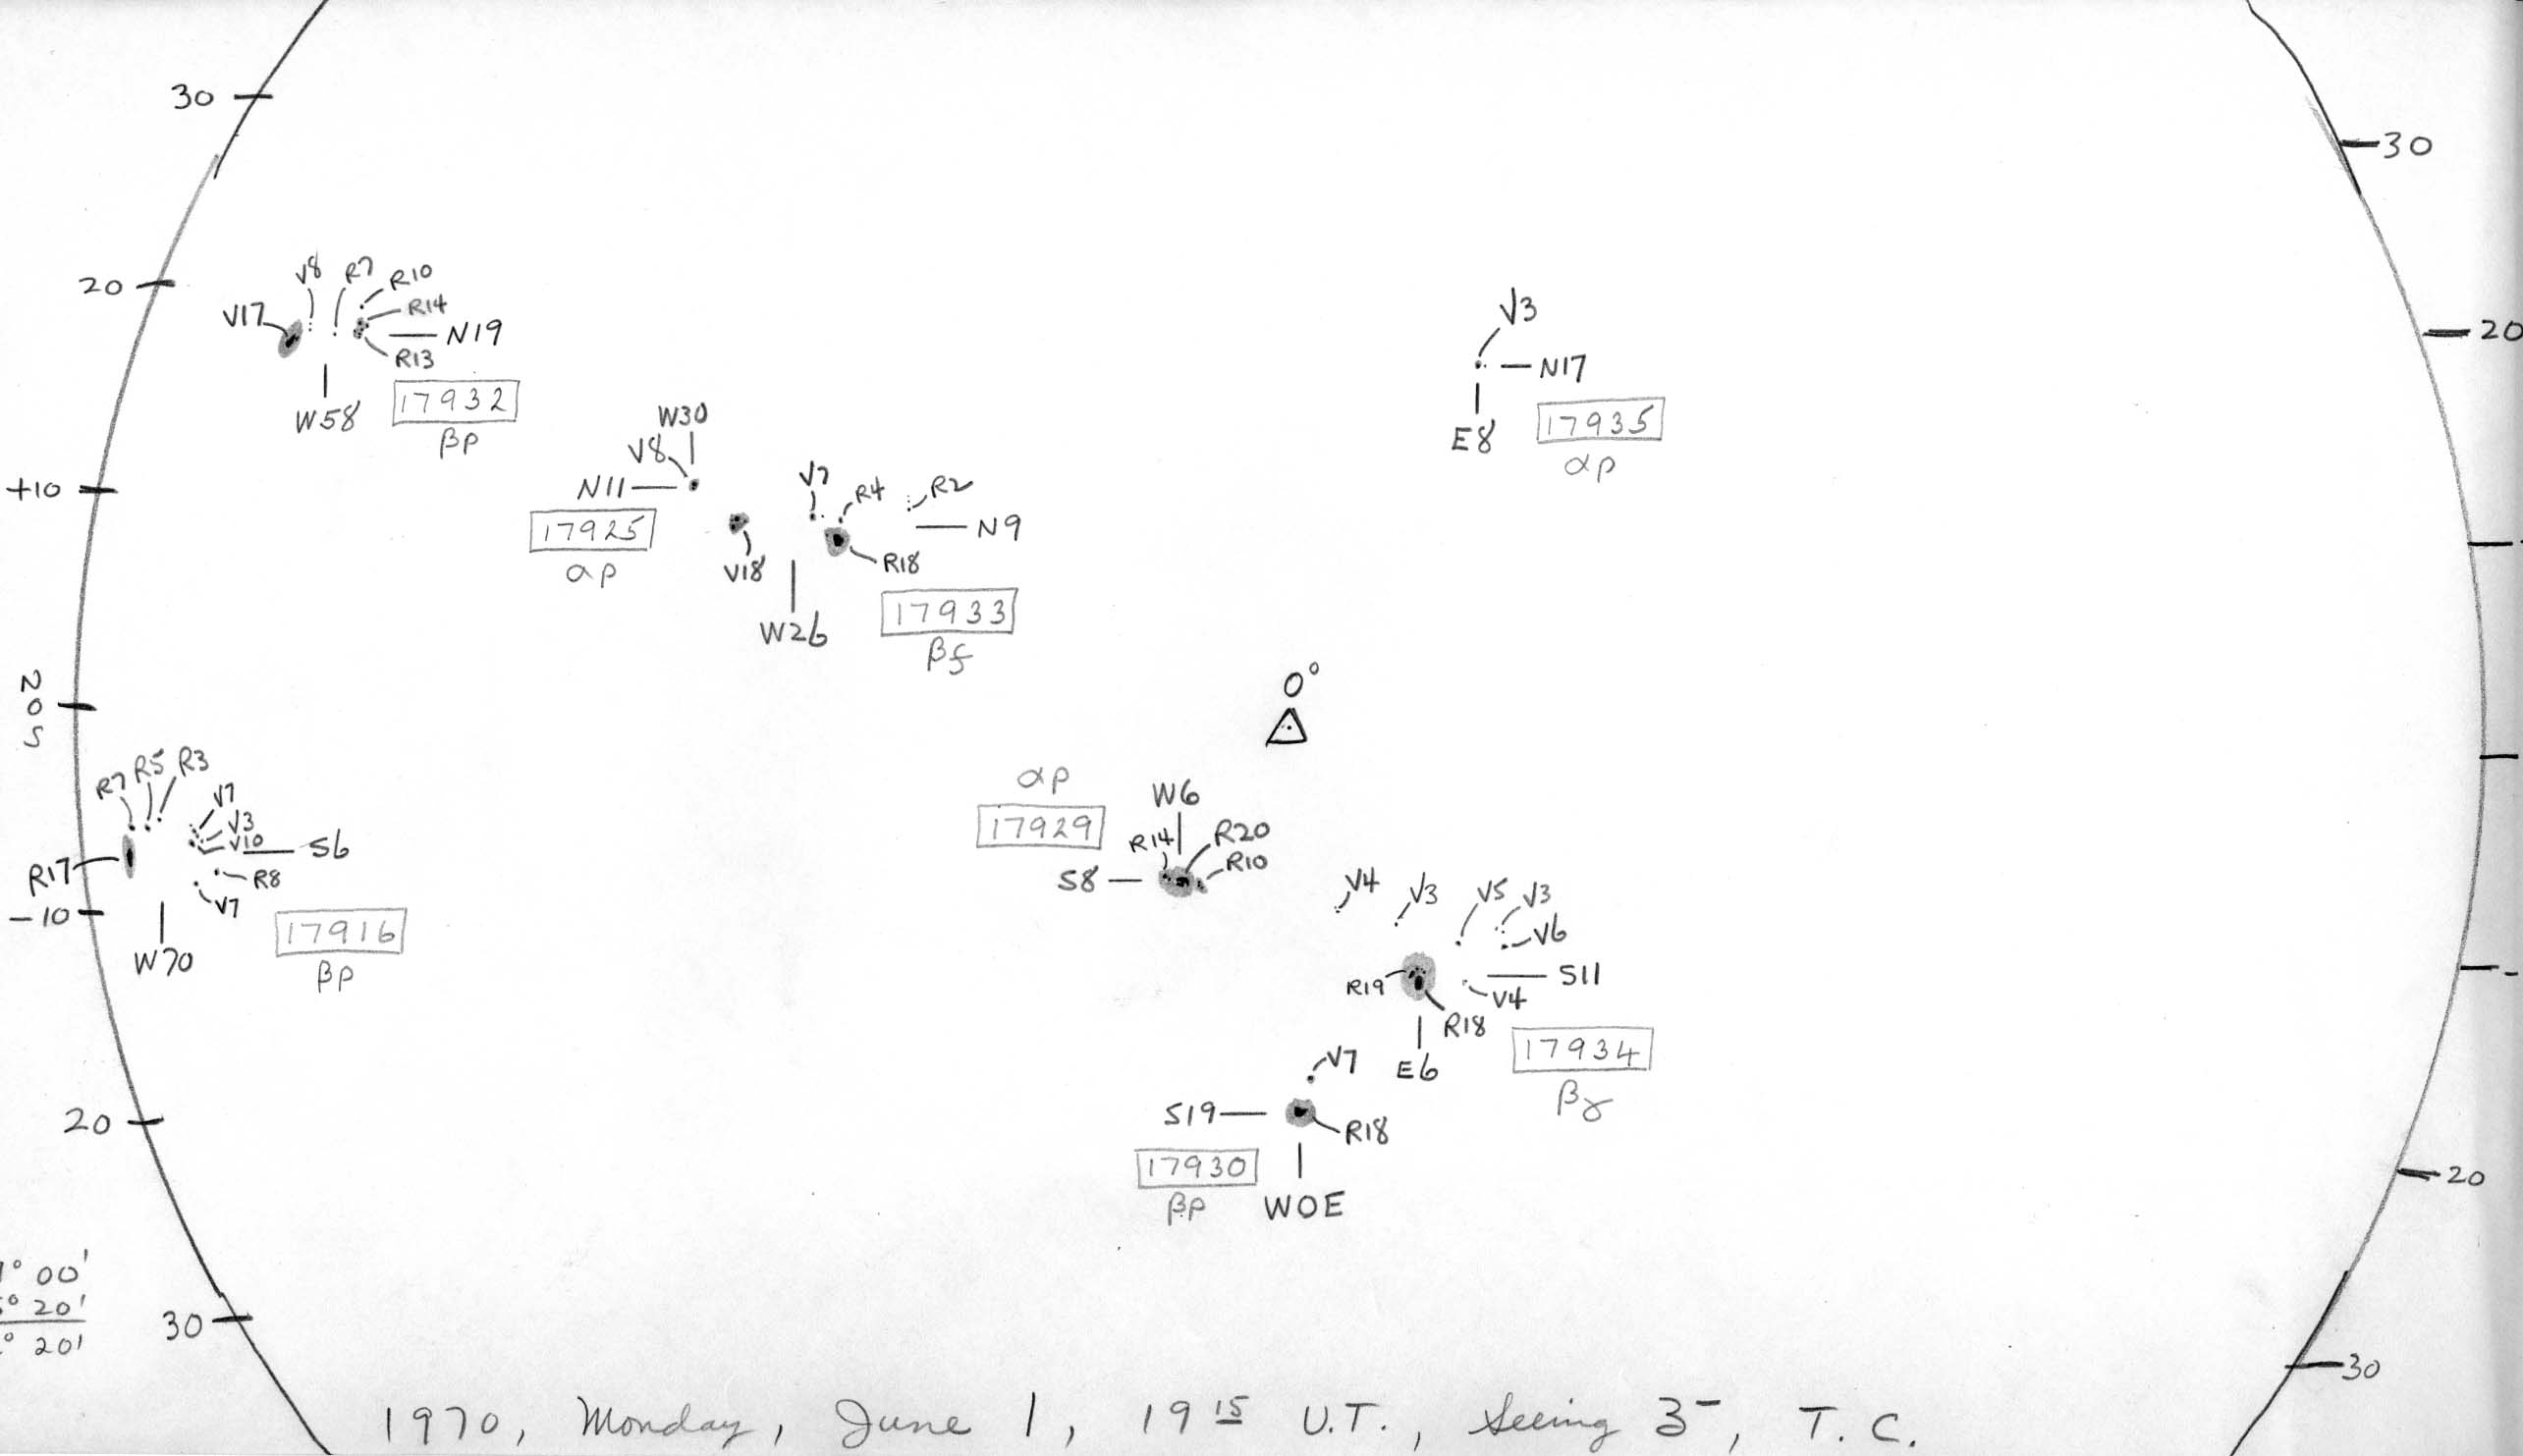 30
30
20
V8 R7 R10
V17 R14
N19
R13
17932
W58
βp
V3
20
N17
E8
17935
αp
W30
V8
+10
N11
17925
αp
V7 R4 R2
N9
V18
R18
17933
W26
βf
N
0
S
0°
R7 R5 R3
V7
V3
V10
S6
R17
R8
V7
-10
17916
W70
βp
αp
W6
17929
R14 R20
R10
S8
V4 V3 V5 V3
V6
R19
S11
V4
R18
E6
17934
βγ
V7
S19
R18
17930
βp
W0E
20
20
° 00'
° 20'
° 20'
30
30
1970, Monday, June 1, 19 15 U.T., Seeing 3-, T.C.